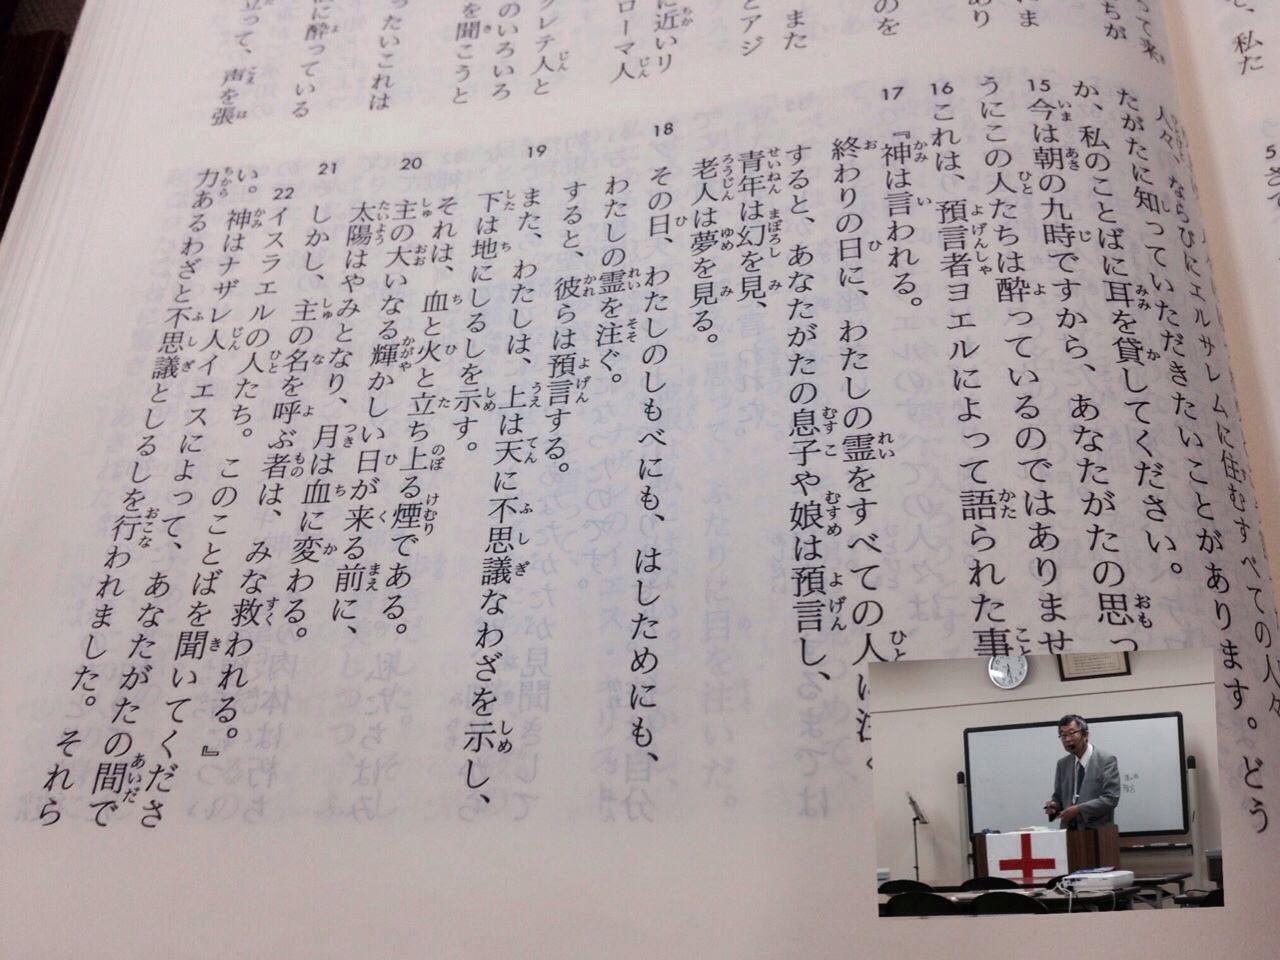 、私た
って来
ちが
にま
あり
のを
また
とアジ
に近いリ
ローマ人
クレテ人と
のいろいろ
を聞こうと
ったいこれは
に酔っている
立って、声を張
人々、ならびにエルサレムに住むすべての人々
たがたに知っていただきたいことがあります。どう
か、私のことばに耳を貸してください。
15 今は朝の九時ですから、あなたがたの思っ
うにこの人たちは酔っているのではありませ
16 これは、預言者ヨエルによって語られた事
17 『神は言われる。
終わりの日に、わたしの霊をすべての人に注
すると、あなたがたの息子や娘は預言し、
青年は幻を見、
老人は夢を見る。
18 その日、わたしのしもべにも、はしためにも、
わたしの霊を注ぐ。
すると、彼らは預言する。
19 また、わたしは、上は天に不思議なわざを示し、
下は地にしるしを示す。
それは、血と火と立ち上る煙である。
20 主の大いなる輝かしい日が来る前に、
太陽はやみとなり、月は血に変わる。
21 しかし、主の名を呼ぶ者は、みな救われる。』
22 イスラエルの人たち。このことばを聞いてくださ
い。神はナザレ人イエスによって、あなたがたの間で
力あるわざと不思議としるしを行われました。それら